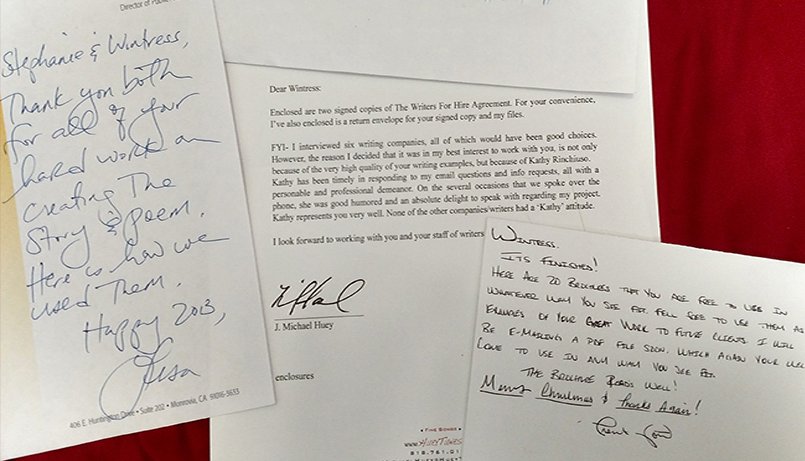 Director of Public
Stephanie & Wintress,
Thank you both
for all of your
hard work on
creating The
Story & poem.
Here is how we
used Them.
Happy 2013,
Lisa
406 E. Huntington Drive • Suite 202 • Monrovia, CA 91016-3633
Dear Wintress:
Enclosed are two signed copies of The Writers For Hire Agreement. For your convenience,
I've also enclosed a return envelope for your signed copy and my files.
FYI- I interviewed six writing companies, all of which would have been good choices.
However, the reason I decided that it was in my best interest to work with you, is not only
because of the very high quality of your writing examples, but because of Kathy Rinchiuso.
Kathy has been timely in responding to my email questions and info requests, all with a
personable and professional demeanor. On the several occasions that we spoke over the
phone, she was good humored and an absolute delight to speak with regarding my project.
Kathy represents you very well. None of the other companies/writers had a 'Kathy' attitude.
I look forward to working with you and your staff of writers
J. Michael Huey
enclosures
• Fine Songs •
www.HueyTunes
818-761-01
Wintress,
Its Finished!
Here Are 20 Brochures that you are free to use in
whatever way you see fit. Fell free to use them as
Examples of your Great Work to future clients. I will
Be E-mailing a PDF file soon. Which again your well
Come to use in any way you see fit.
The Brochure Reads Well!
Merry Christmas & Thanks Again!